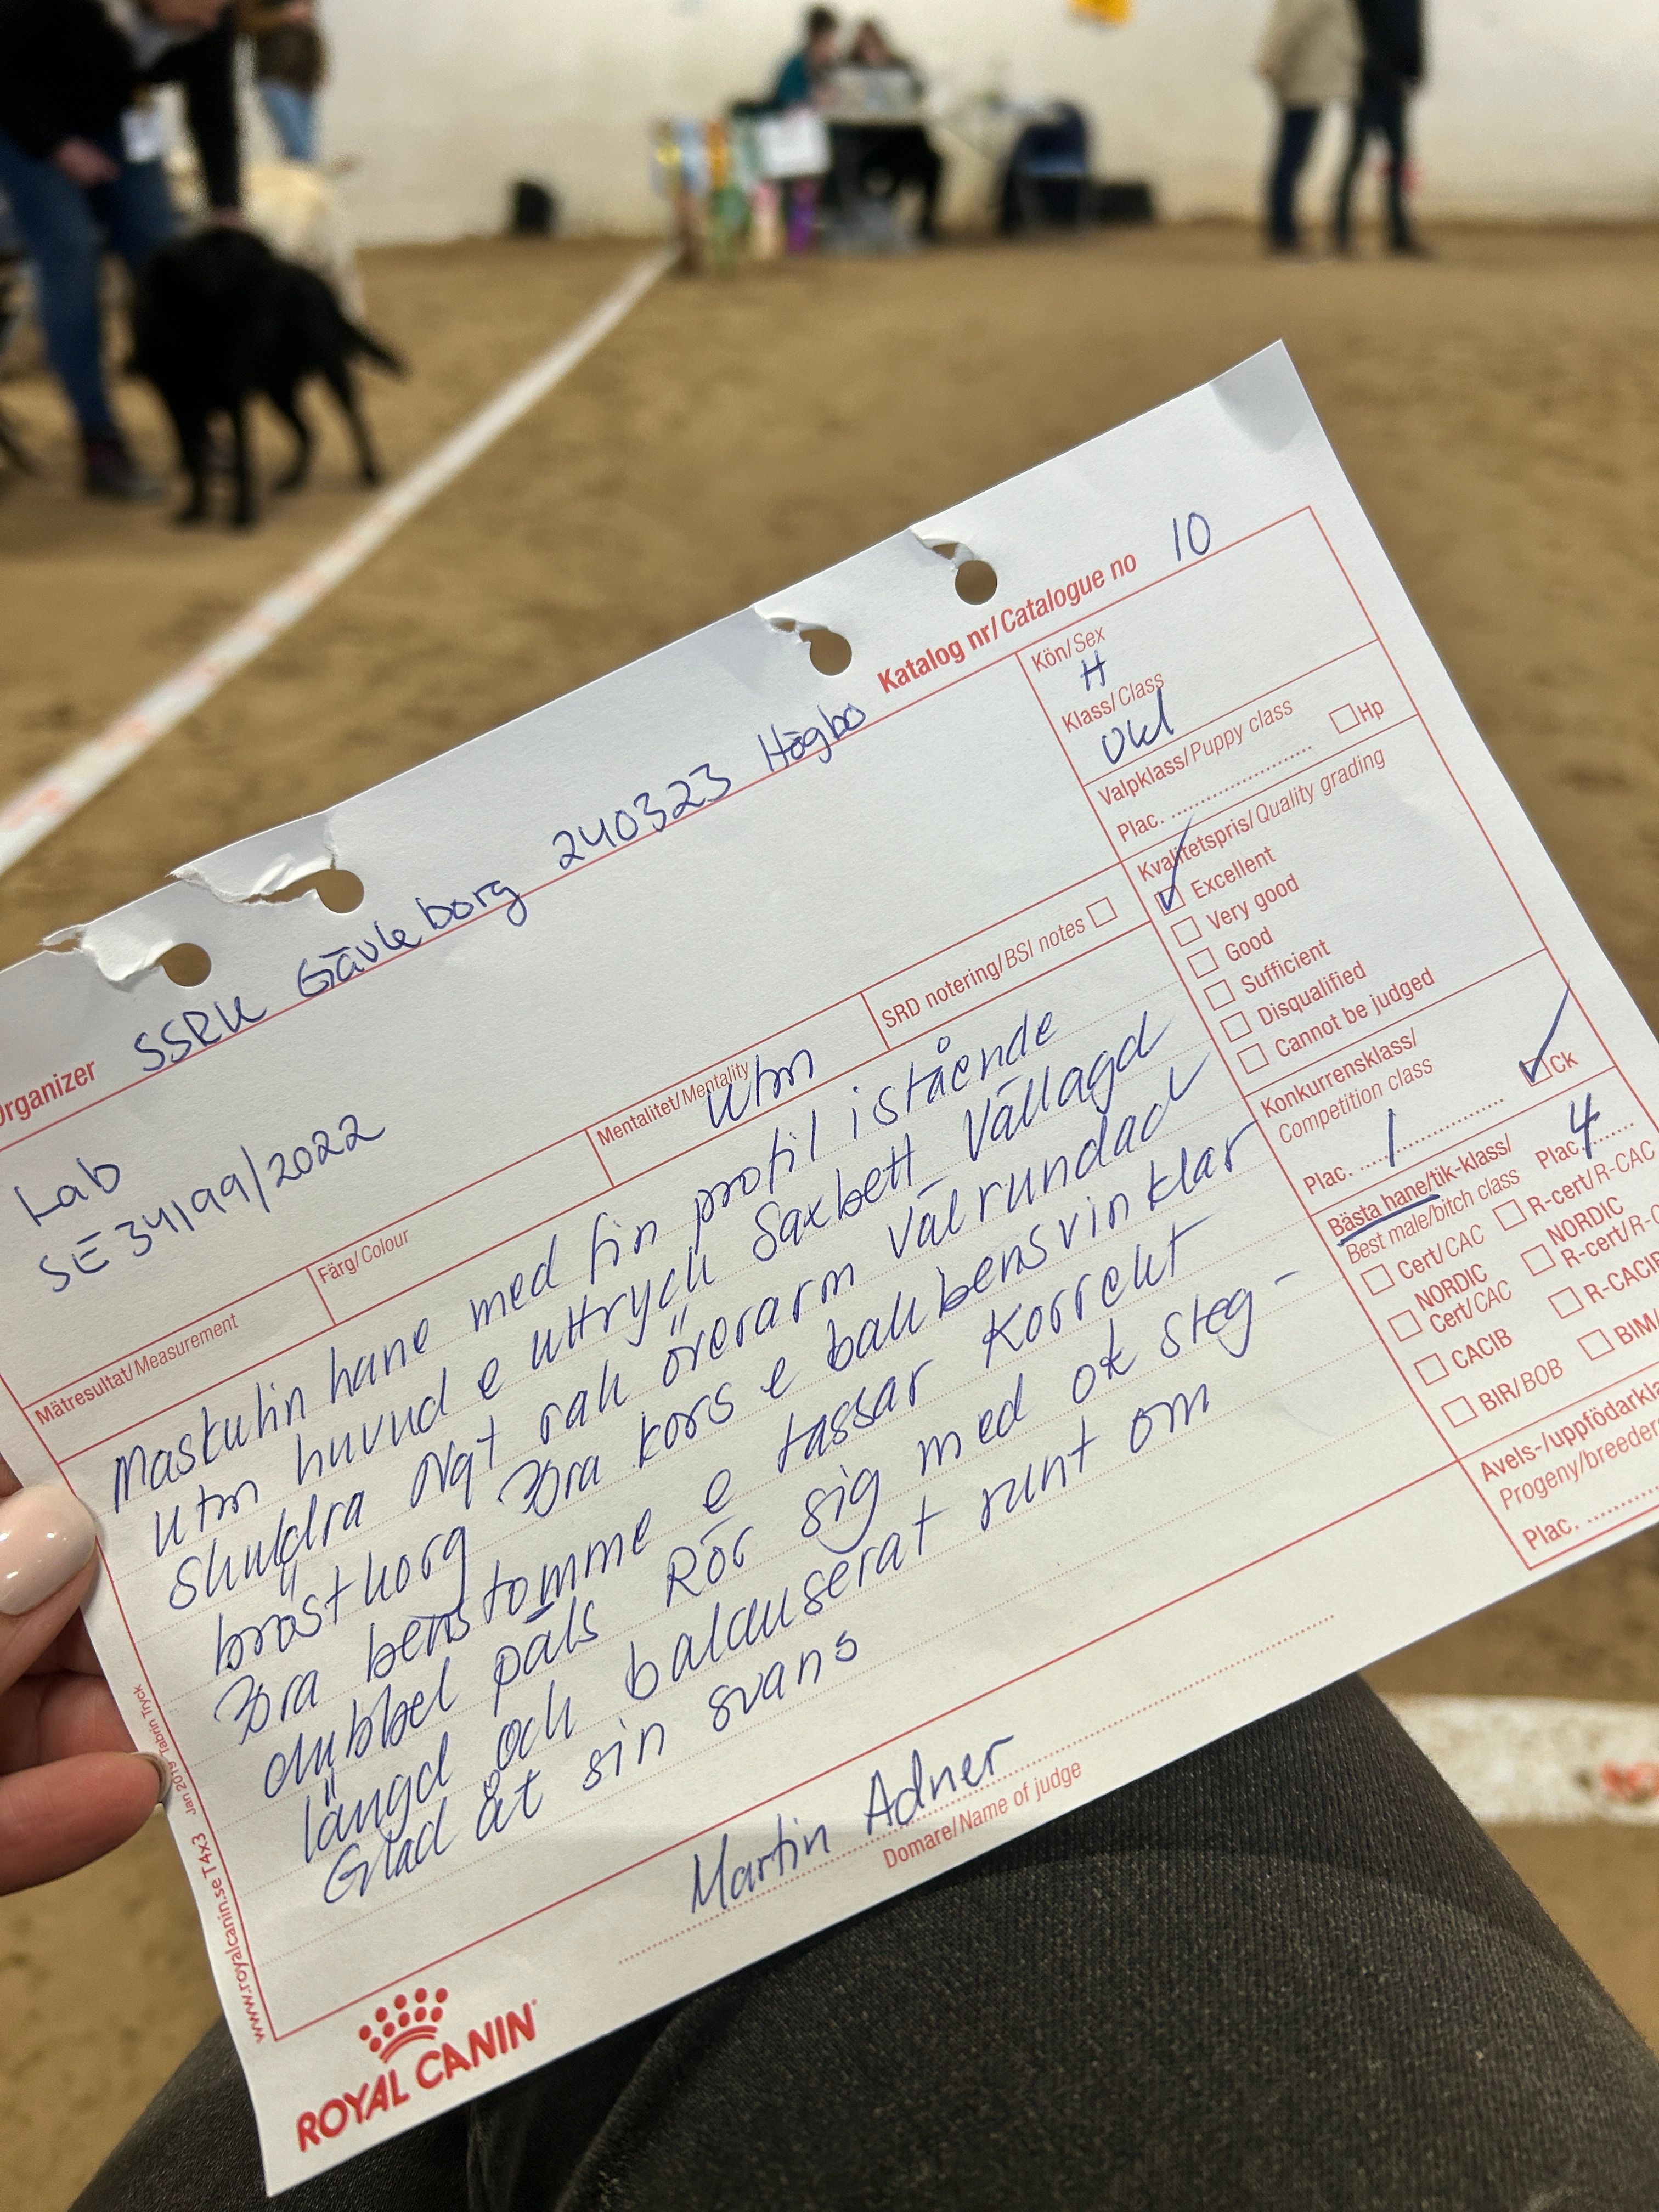 Katalog nr/Catalogue no 10
Organizer SSRK Gävleborg 240323 Högbo
Lab
SE34199/2022
Kön/Sex
H
Klass/Class
Ukl
Valpklass/Puppy class
Plac. .......... Hp
Kvalitetspris/Quality grading
Excellent
Very good
Good
Sufficient
Disqualified
Cannot be judged
Konkurrensklass/
Competition class
Plac. 1 Ck
Bästa hane/tik-klass/
Best male/bitch class
Plac. 4
Cert/CAC
R-cert/R-CAC
NORDIC
Cert/CAC
NORDIC
R-cert/R-C
CACIB
R-CACIB
BIR/BOB
BIM/
Avels-/uppfödarkla
Progeny/breeder
Plac. ..........
Mätresultat/Measurement
Färg/Colour
Mentalitet/Mentality
utm
SRD notering/BSI notes
Maskulin hane med fin profil i stående
utm huvud e uttryck Saxbett Vällagd
skuldra Ngt rak överarm Välrundad
bröstkorg Bra kors e bakbensvinklar
Bra benstomme e tassar Korrekt
dubbel päls Rör sig med ok steg-
längd och balanserat runt om
Glad åt sin svans
Martin Adner
Domare/Name of judge
www.royalcanin.se T4x3 Jan 2019 Tabrin Tryck
ROYAL CANIN